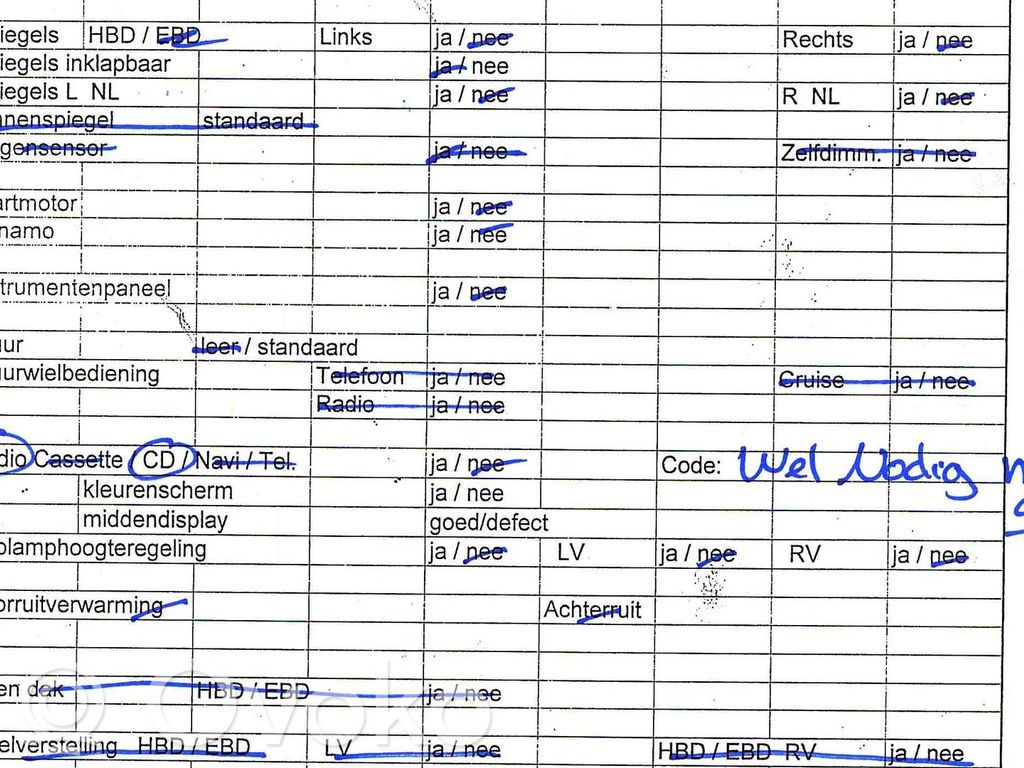 iegels HBD / EBD Links ja / nee Rechts ja / nee
iegels inklapbaar ja / nee
iegels L NL ja / nee R NL ja / nee
nnenspiegel standaard
gensensor ja / nee Zelfdimm. ja / nee
artmotor ja / nee
namo ja / nee
trumentenpaneel ja / nee
uur leer / standaard
uurwielbediening Telefoon ja / nee Cruise ja / nee
Radio ja / nee
dio Cassette / CD / Navi / Tel. ja / nee Code: Wel Nodig
kleurenscherm ja / nee
middendisplay goed/defect
plamphoogteregeling ja / nee LV ja / nee RV ja / nee
orruitverwarming Achterruit
en dak HBD / EBD ja / nee
© Ovoko
elverstelling HBD / EBD LV ja / nee HBD / EBD RV ja / nee